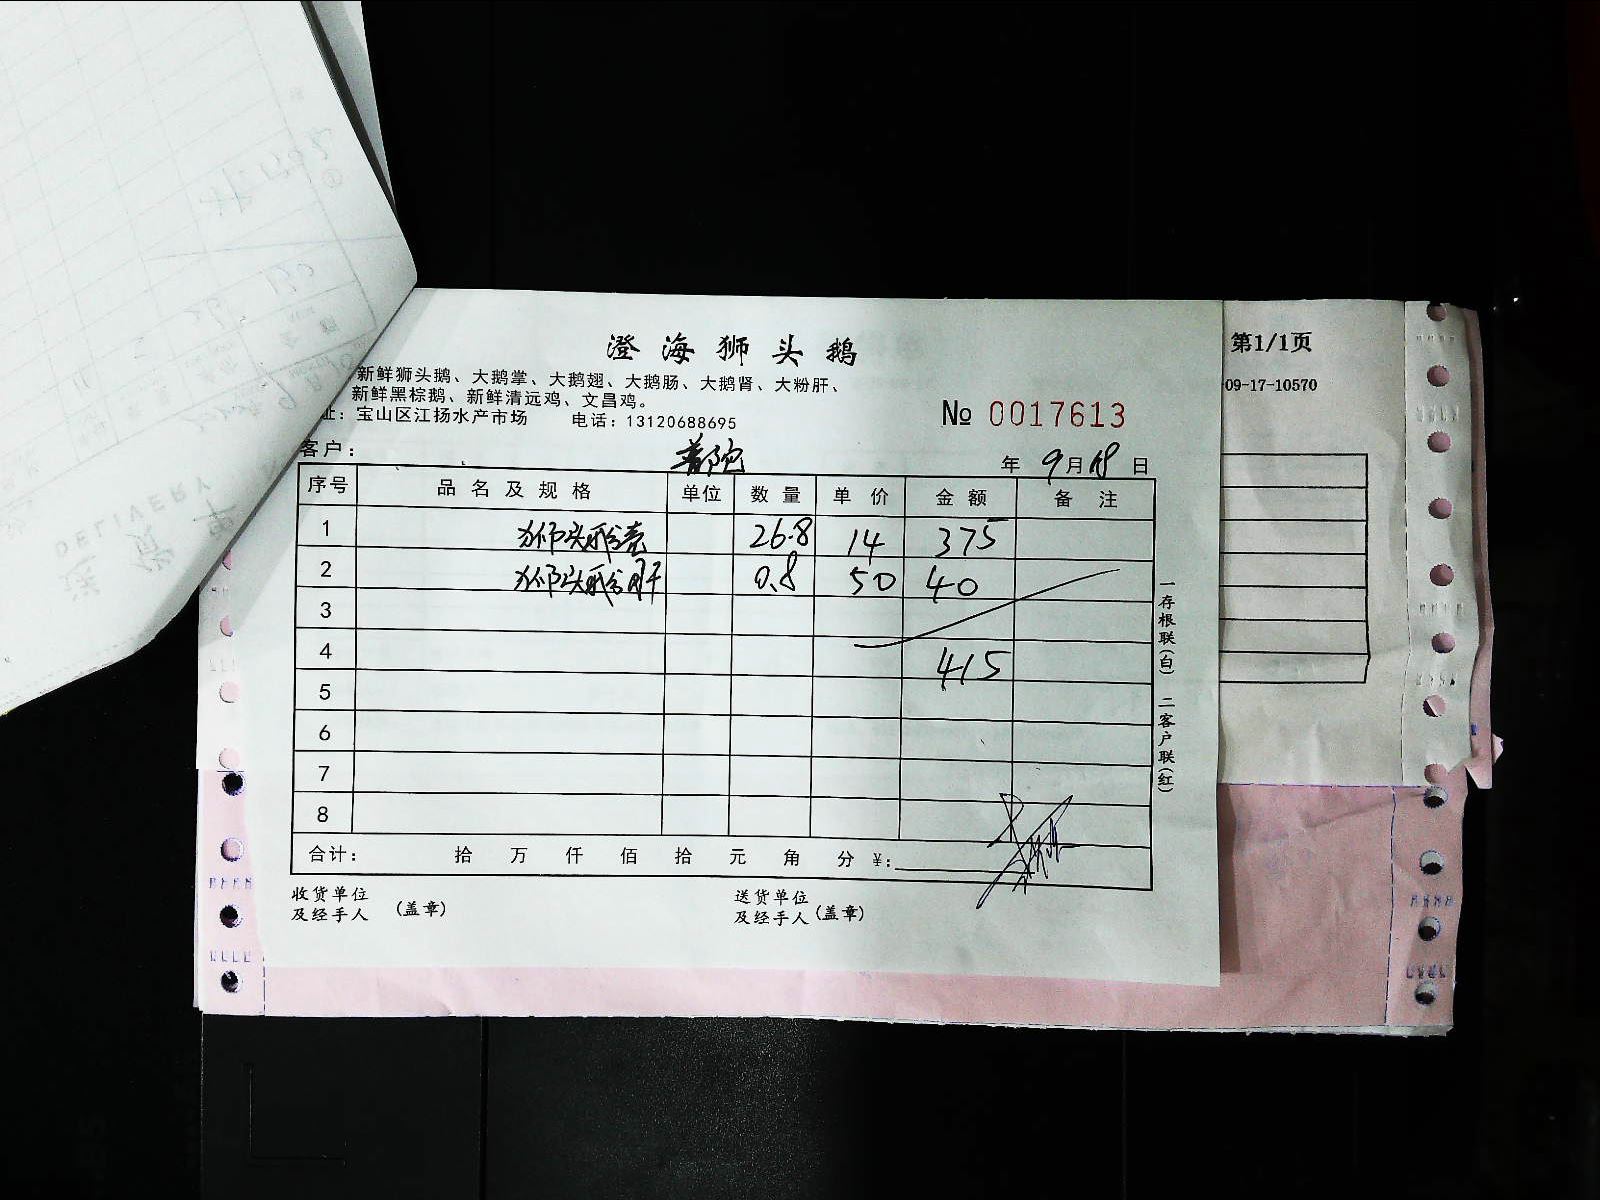 澄海狮头鹅
新鲜狮头鹅、大鹅掌、大鹅翅、大鹅肠、大鹅肾、大粉肝、
新鲜黑棕鹅、新鲜清远鸡、文昌鸡。
址：宝山区江扬水产市场 电话：13120688695
№ 0017613
客户： 普陀
年 9月18日
序号 品名及规格 单位 数量 单价 金额 备注
1 狮头鹅壳 26.8 14 375
2 狮头鹅肝 0.8 50 40
3
4 415
5
6
7
8
合计： 拾 万 仟 佰 拾 元 角 分 ¥:
收货单位 及经手人 (盖章)
送货单位 及经手人 (盖章)
一存根联(白) 二客户联(红)
第1/1页
-09-17-10570
DELIVERY